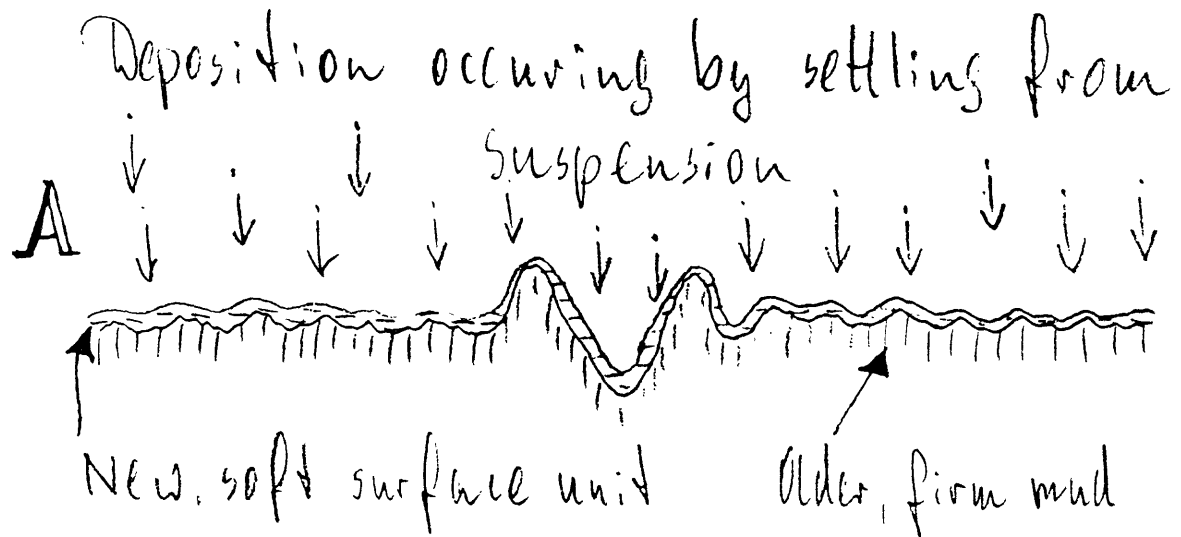 Deposition occuring by settling from
suspension
A
New, soft surface unit
Older, firm mud